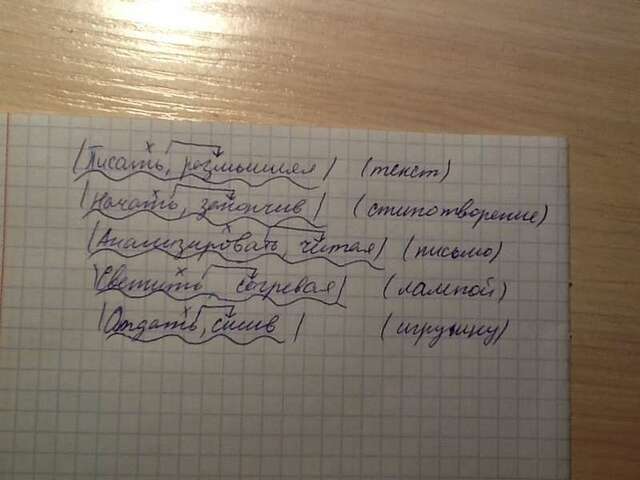 |Писать, размышляя| (текст)
|Начать, закончив| (стихотворение)
|Анализировать, читая| (письмо)
|Светить, согревая| (лампой)
|Отдать, сшив| (игрушку)